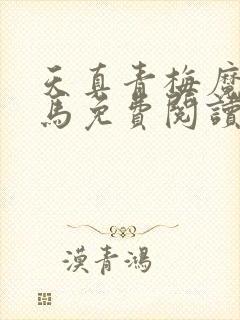 天真青梅魔
馬免費閱讀
漢青鴻